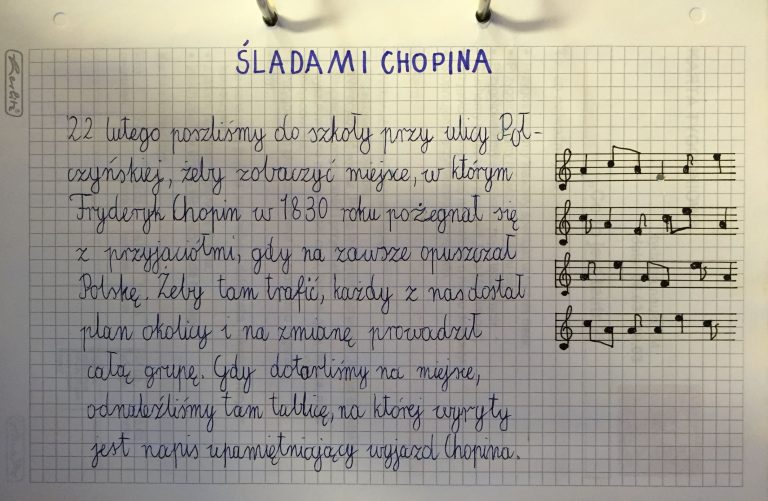 ŚLADAMI CHOPINA
22 lutego poszliśmy do szkoły przy ulicy Poł-
czyńskiej, żeby zobaczyć miejsce, w którym
Fryderyk Chopin w 1830 roku pożegnał się
z przyjaciółmi, gdy na zawsze opuszczał
Polskę. Żeby tam trafić, każdy z nas dostał
plan okolicy i na zmianę prowadził
całą grupę. Gdy dotarliśmy na miejsce,
odnaleźliśmy tam tablicę, na której wyryty
jest napis upamiętniający wyjazd Chopina.